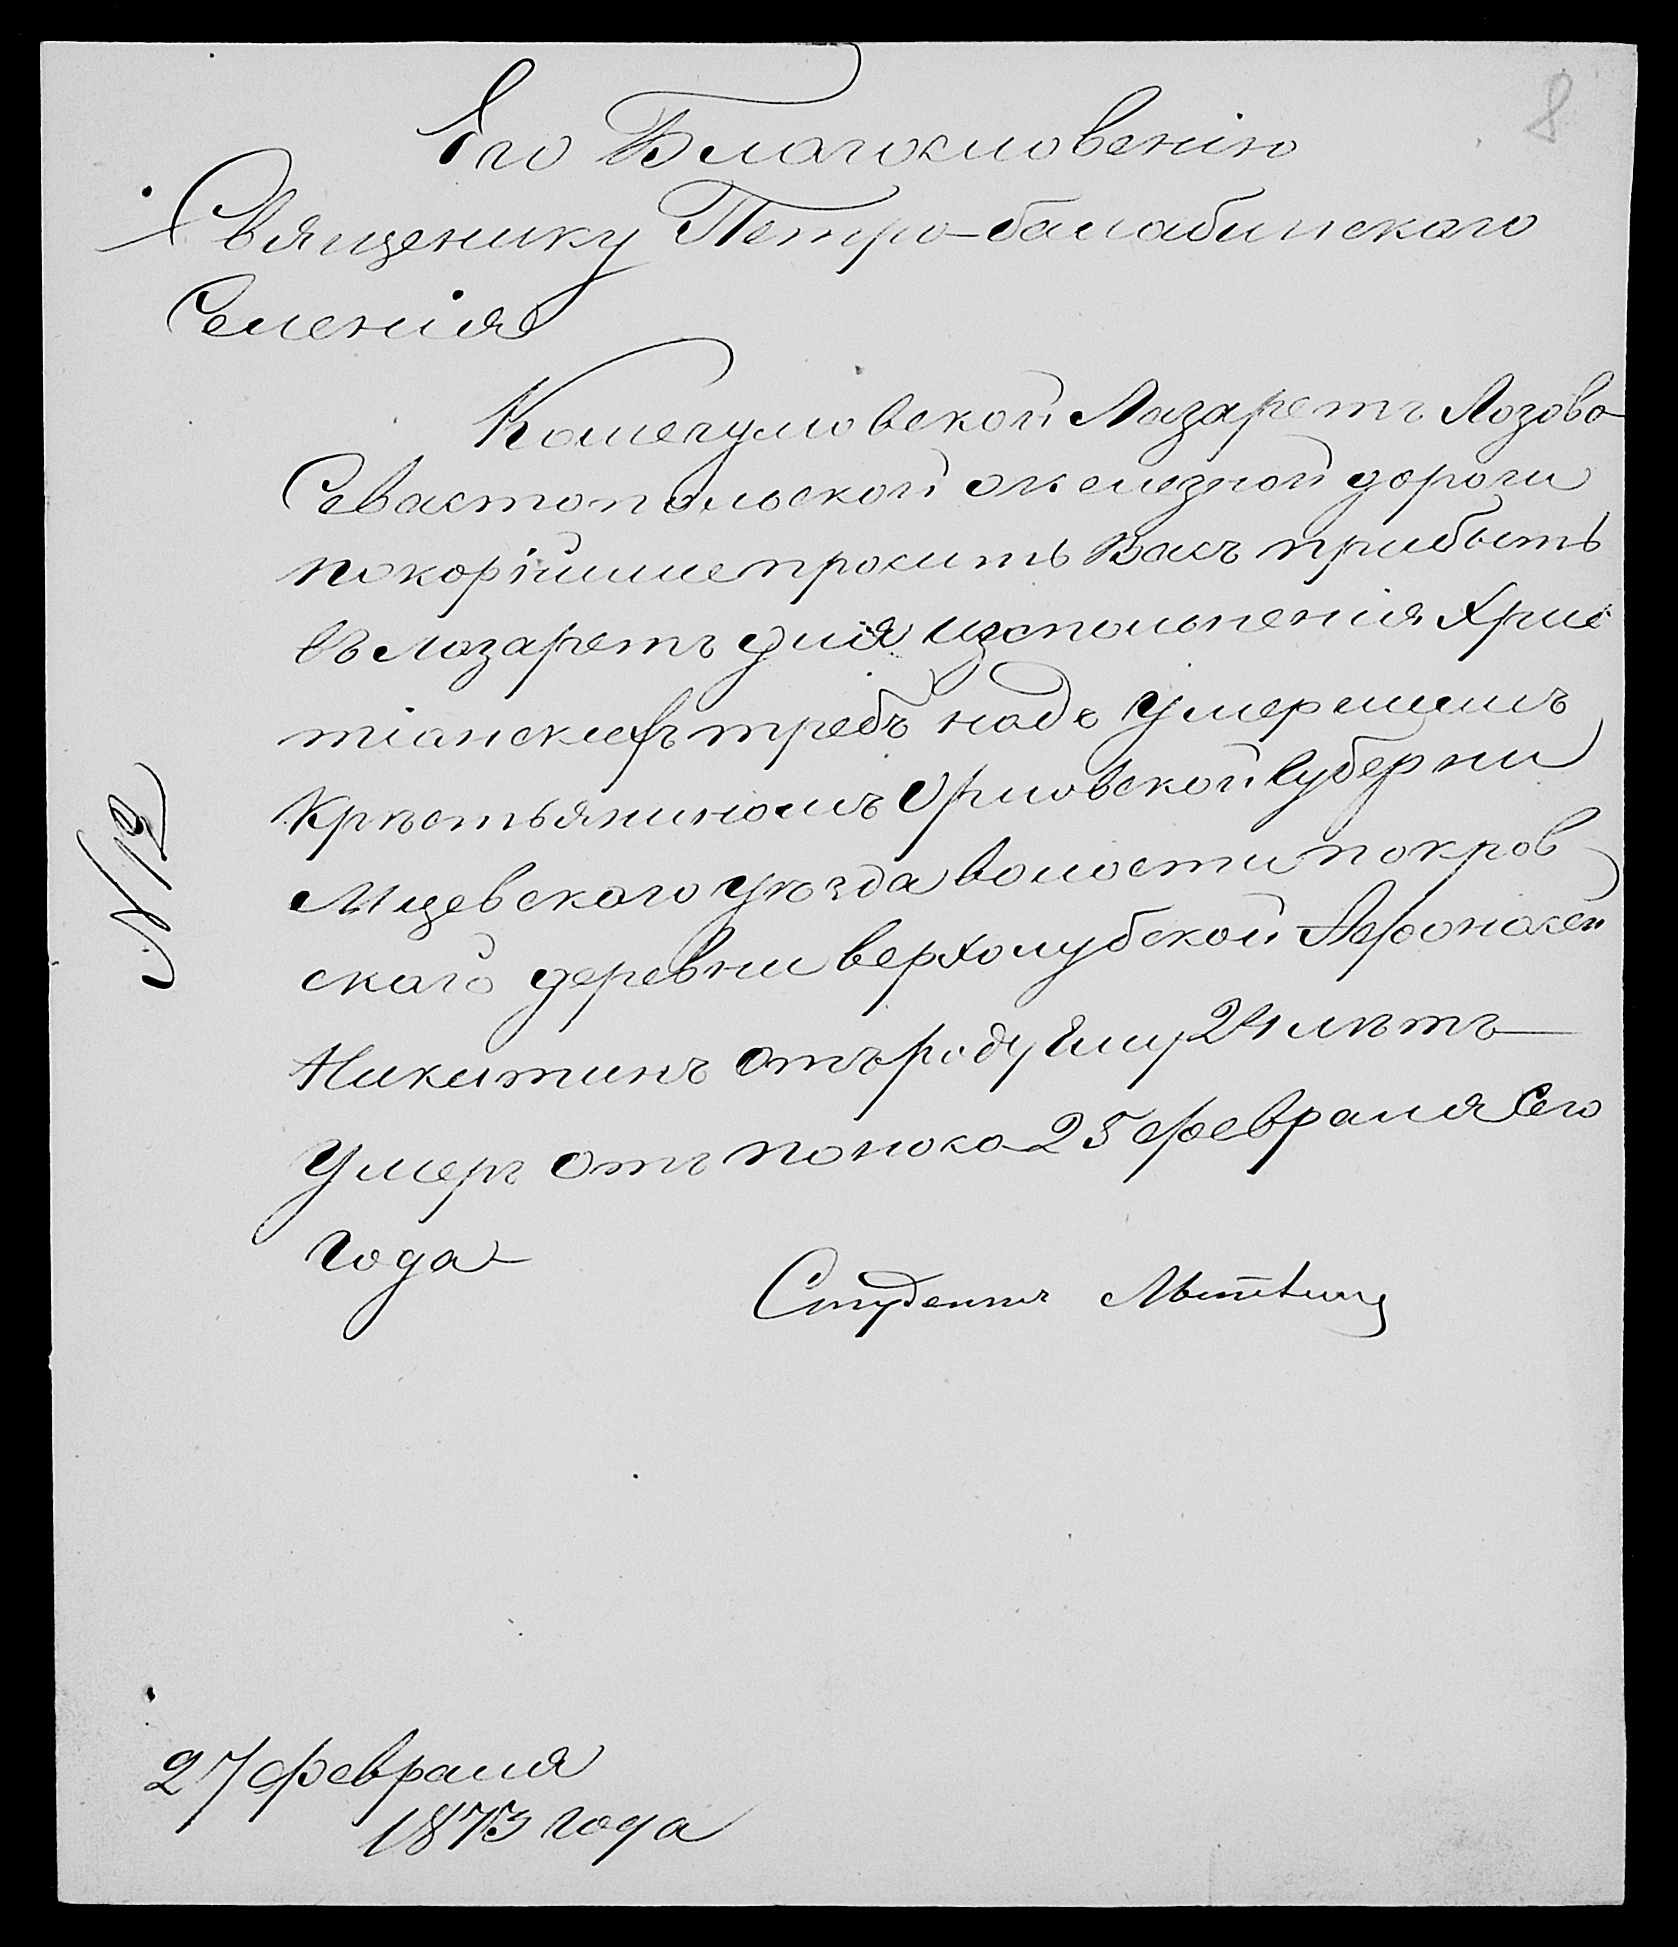 8
Его Благословенію
Священику Петро-балабинскаго
Селенія
Кошегумовской Лазаретъ Лозово-
Севастопольской железной дороги
покорнійше просить Васъ прибыть
въ лазаретъ для изсполненія Хрис
тіанскихъ требъ надъ Умершимъ
Крѣстьяниномъ Орловской Губерни
Мцевского уѣзда волости покров
ского деревни верхолубской Афонасей
Никитинъ отъ роду Ему 24 лѣтъ
Умеръ отъ поноса 25 февраля Сего
Года
Студентъ
N 12
27 февраля
1873 года